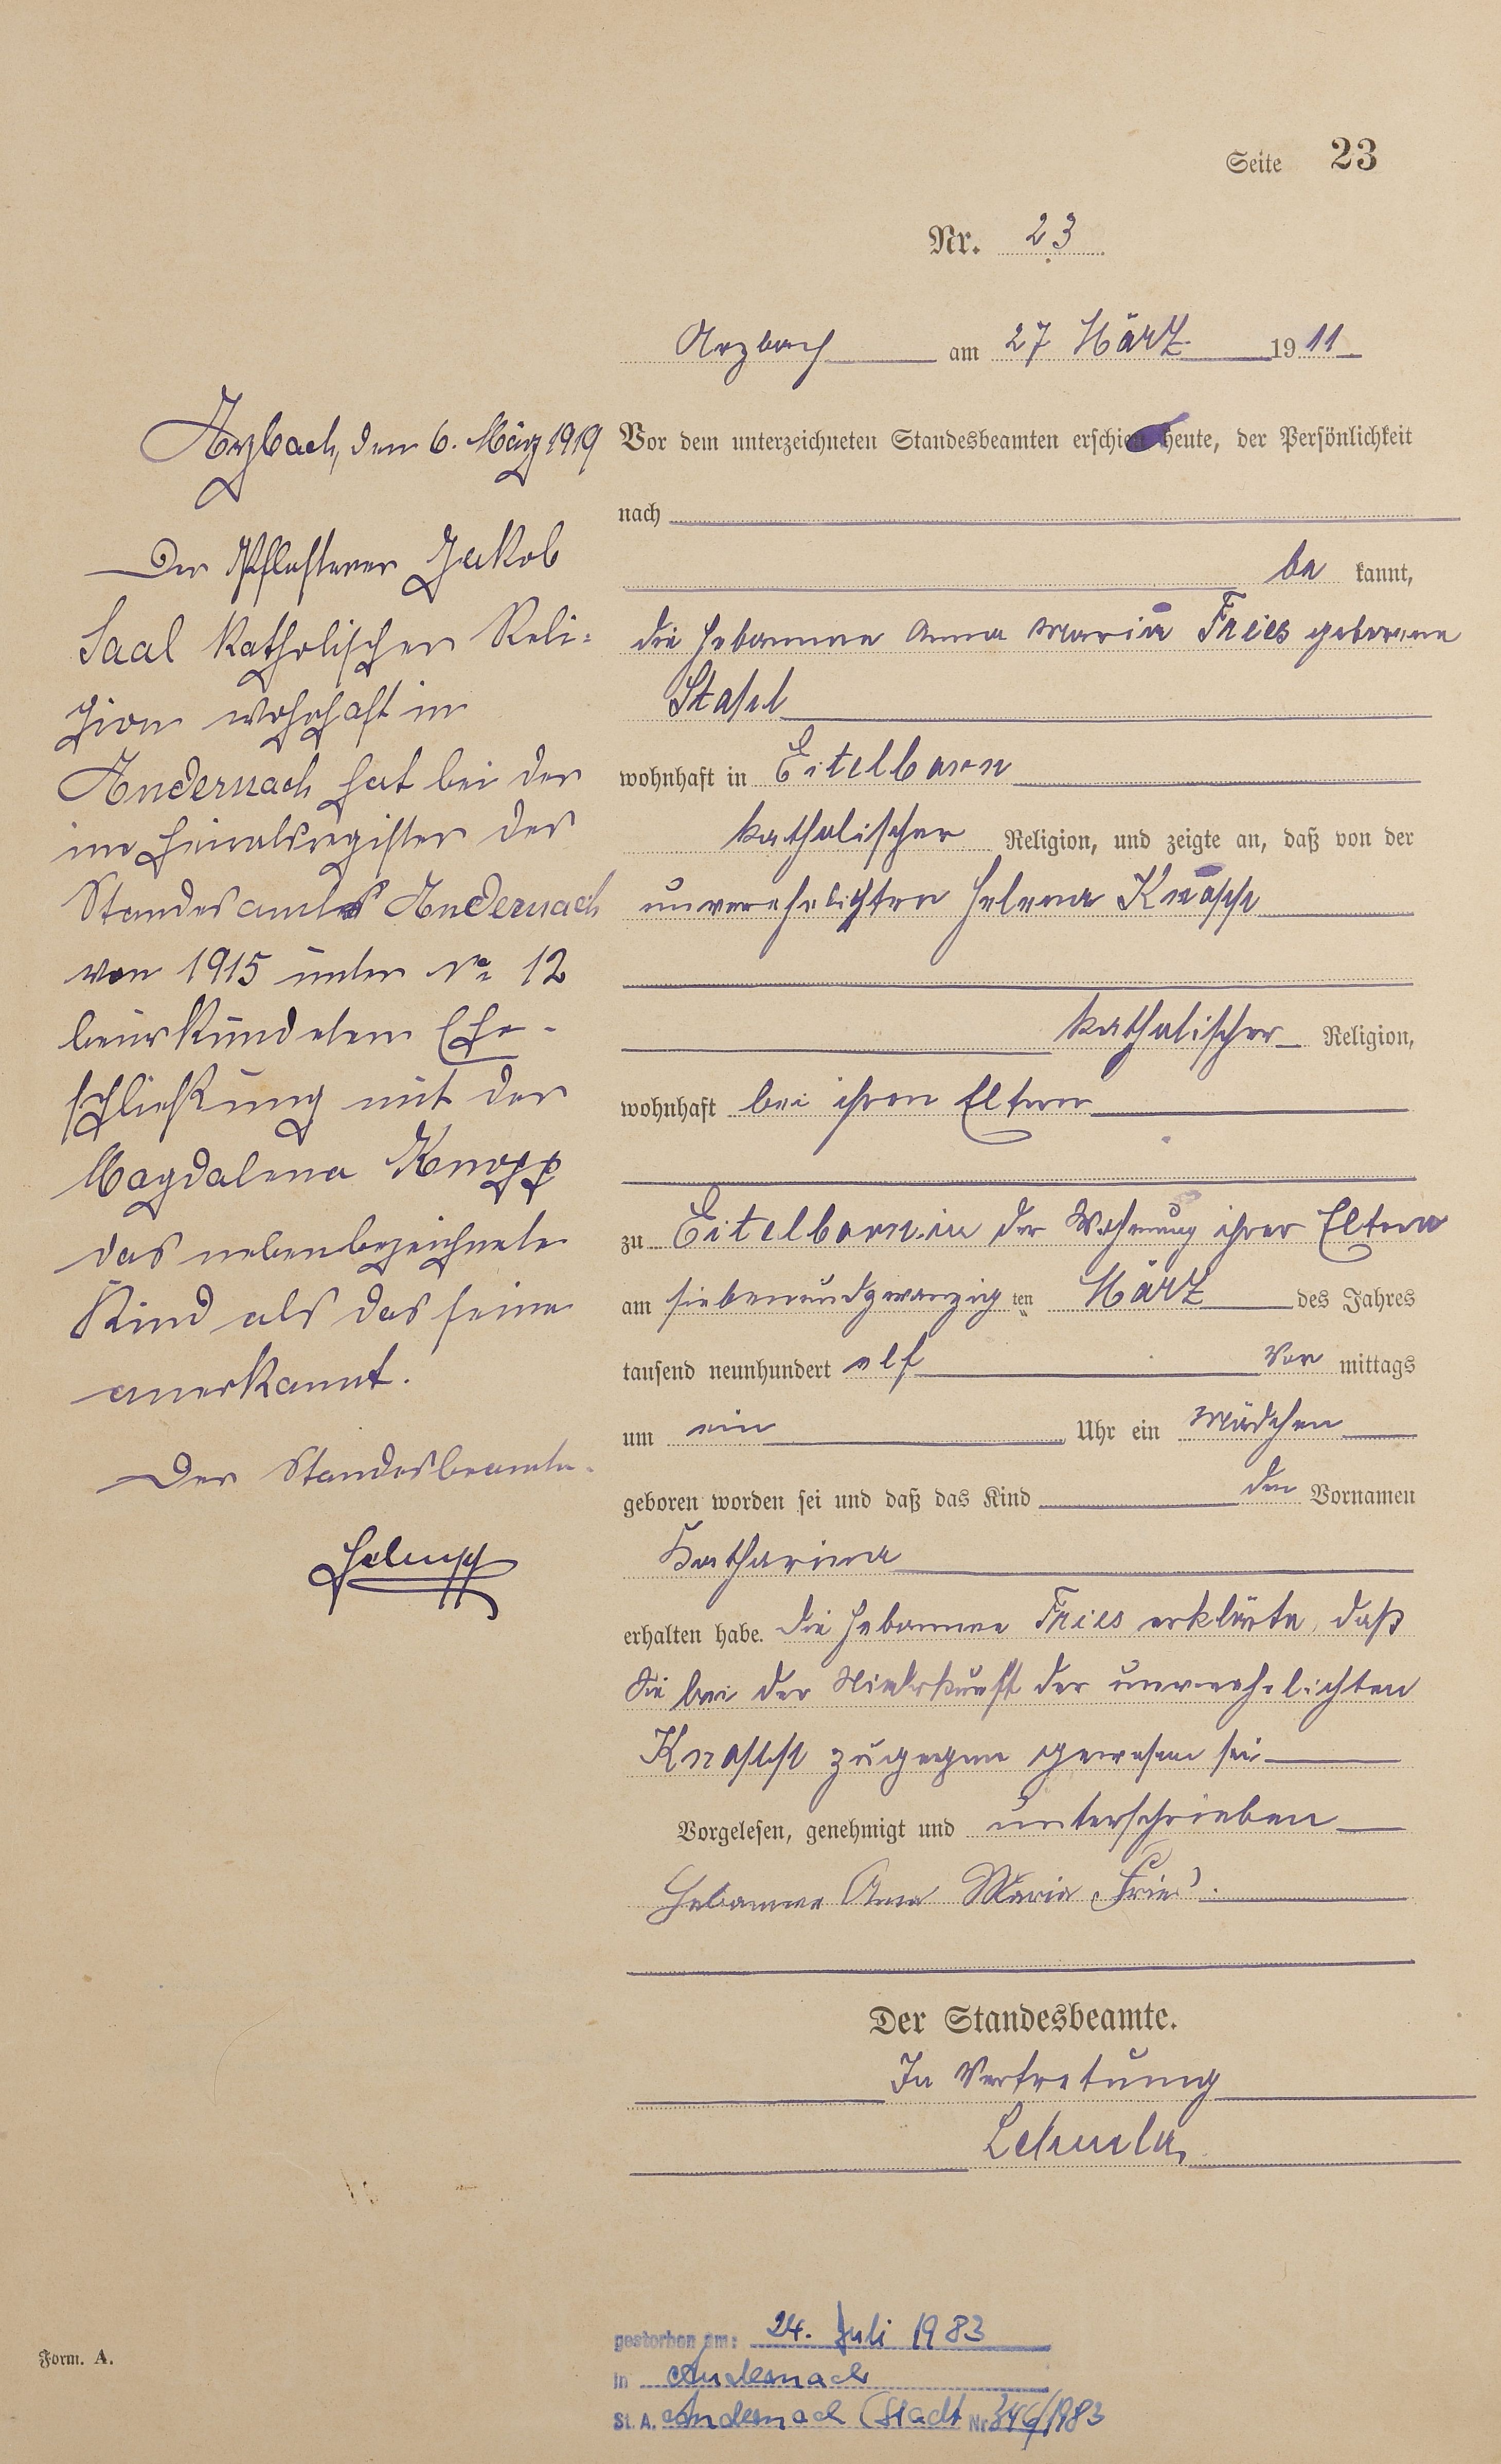 Seite 23
Nr. 23
Arzbach am 27 März 1911
Vor dem unterzeichneten Standesbeamten erschien heute, der Persönlichkeit
nach
be kannt,
die Hebamme Anna Maria Fries geborene
wohnhaft in Eitelborn
katholischer Religion, und zeigte an, daß von der
unverehelichten Helena Knopp
katholischer Religion,
wohnhaft bei ihren Eltern
zu Eitelborn in der Wohnung ihrer Eltern
am siebenundzwanzig ten März des Jahres
tausend neunhundert elf Vor mittags
um ein Uhr ein Mädchen
geboren worden sei und daß das Kind den Vornamen
Katharina
erhalten habe. Die Hebamme Fries erklärte, daß
Sie bei der Niederkunft der unverehelichten
Knopp zugegen gewesen sei
Vorgelesen, genehmigt und unterschrieben
Hebamme Anna Maria Fries.
Der Standesbeamte.
In Vertretung
Arzbach, den 6. März 1919
Der Pflasterer Jakob
Saal katholischer Reli-
gion wohnhaft in
Andernach hat bei der
im Heiratsregister des
Standesamtes Andernach
von 1915 unter No 12
beurkundeten Ehe-
schließung mit der
Magdalena Knopp
das nebenbezeichnete
Kind als das seine
anerkannt.
Der Standesbeamte.
gestorben am: 24. Juli 1983
in Andernach
St. A. Andernach (Stadt Nr. 346/1983
Form. A.